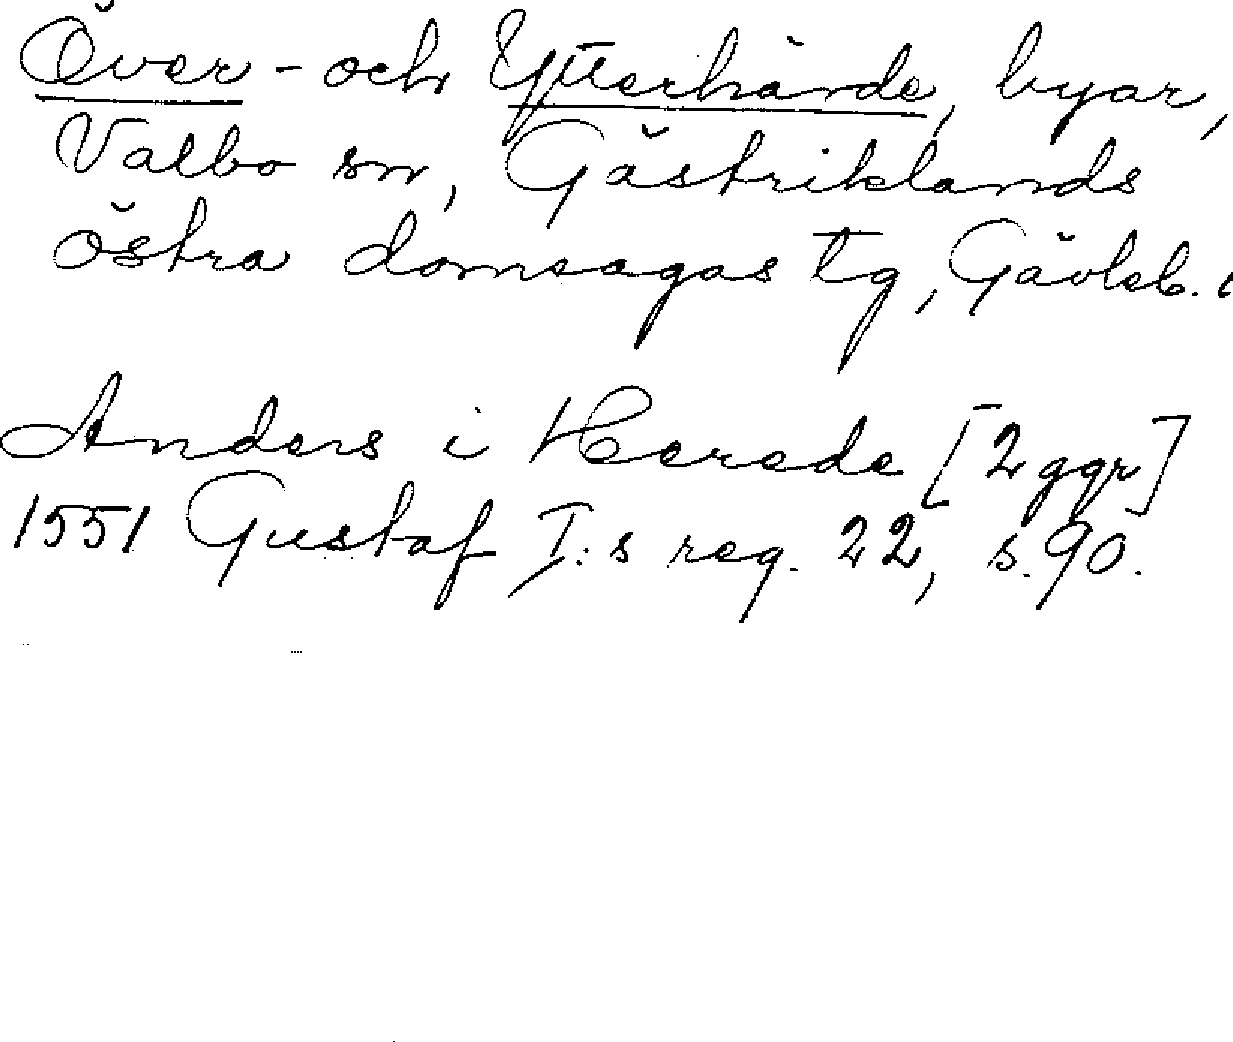 Över- och Ytterhärde, byar,
Valbo sn, Gästriklands
östra domsagas tg, Gävleb. l
Anders i Herede [2 ggr]
1551 Gustaf I:s reg. 22, s. 90.